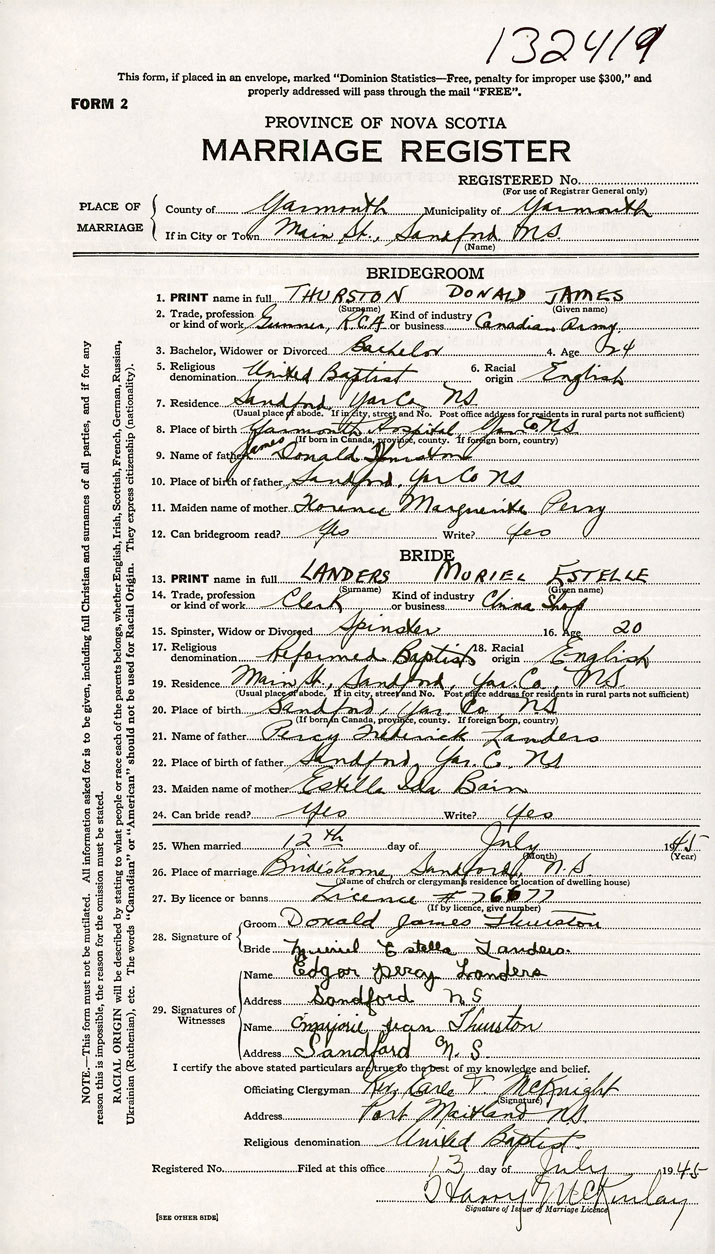 132419
This form, if placed in an envelope, marked "Dominion Statistics—Free, penalty for improper use $300," and
properly addressed will pass through the mail "FREE".
FORM 2
PROVINCE OF NOVA SCOTIA
MARRIAGE REGISTER
REGISTERED No.
(For use of Registrar General only)
PLACE OF MARRIAGE
County of Yarmouth Municipality of Yarmouth
If in City or Town Main St., Sandford NS
(Name)
BRIDEGROOM
1. PRINT name in full THURSTON DONALD JAMES
(Surname) (Given name)
2. Trade, profession or kind of work Gunner, RCA Kind of industry or business Canadian Army
3. Bachelor, Widower or Divorced Bachelor 4. Age 24
5. Religious denomination United Baptist 6. Racial origin English
7. Residence Sandford, Yar Co, NS
(Usual place of abode. If in city, street and No. Post office address for residents in rural parts not sufficient)
8. Place of birth Yarmouth Hospital Yar Co NS
(If born in Canada, province, county. If foreign born, country)
9. Name of father James Donald Thurston
10. Place of birth of father Sandford, Yar Co NS
11. Maiden name of mother Florence Marguerite Perry
12. Can bridegroom read? Yes Write? Yes
BRIDE
13. PRINT name in full LANDERS MURIEL ESTELLE
(Surname) (Given name)
14. Trade, profession or kind of work Clerk Kind of industry or business China Shop
15. Spinster, Widow or Divorced Spinster 16. Age 20
17. Religious denomination Reformed Baptist 18. Racial origin English
19. Residence Main St., Sandford, Yar. Co., NS
(Usual place of abode. If in city, street and No. Post office address for residents in rural parts not sufficient)
20. Place of birth Sandford, Yar. Co., NS
(If born in Canada, province, county. If foreign born, country)
21. Name of father Percy Landers
22. Place of birth of father Sandford, Yar. C. NS
23. Maiden name of mother Estella Ida Bain
24. Can bride read? Yes Write? Yes
25. When married 12th day of July 1945
(Month) (Year)
26. Place of marriage Bride's home, Sandford, N.S.
(Name of church or clergyman's residence or location of dwelling house)
27. By licence or banns Licence # 76677
(If by licence, give number)
28. Signature of
Groom Donald James Thurston
Bride Muriel Estella Landers.
29. Signatures of Witnesses
Name Edgar Percy Landers
Address Sandford NS
Name Marjorie Jean Thurston
Address Sandford N.S
I certify the above stated particulars are true to the best of my knowledge and belief.
Officiating Clergyman Rev. Earle T. McKnight
(Signature)
Address Port Maitland NS
Religious denomination United Baptist.
Registered No. Filed at this office 13 day of July 1945
Harry McKinlay
Signature of Issuer of Marriage Licence
[SEE OTHER SIDE]
NOTE.—This form must not be mutilated. All information asked for is to be given, including full Christian and surnames of all parties, and if for any
reason this is impossible, the reason for the omission must be stated.
RACIAL ORIGIN will be described by stating to what people or race each of the parents belongs, whether English, Irish, Scottish, French, German, Russian,
Ukrainian (Ruthenian), etc. The words "Canadian" or "American" should not be used for Racial Origin. They express citizenship (nationality).